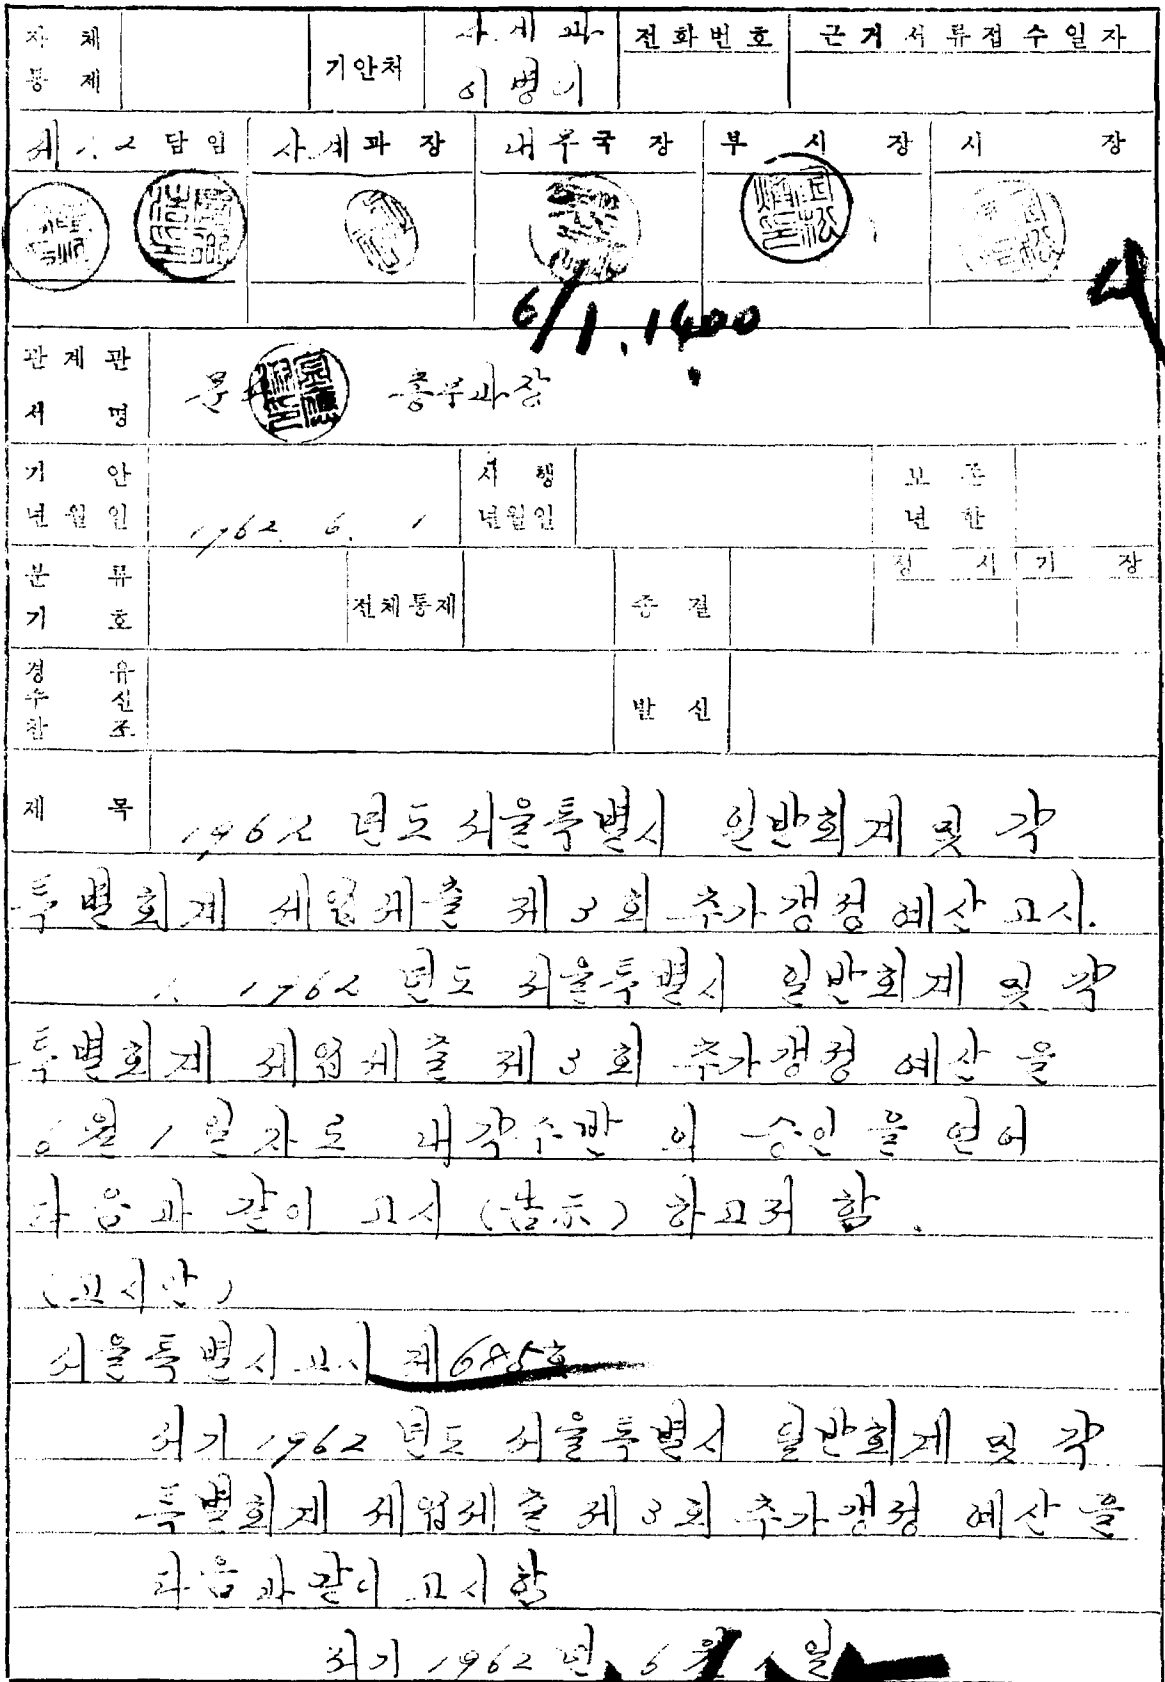 자 체
통 제
기안처
사세과
이병기
전화번호
근거서류접수일자
세1.2담임
사세과장
내무국장
부시장
시장
6/1.1400
관계관
서명
총무과장
기안
년월일
1962. 6. 1
시행
년월일
보존
년한
분류
기호
전체통제
종결
정시
기장
경유
수신
참조
발신
제목
1962년도 서울특별시 일반회계 및 각
특별회계 세입세출 제3회 추가갱정예산 고시.
1. 1962년도 서울특별시 일반회계 및 각
특별회계 세입세출 제3회 추가갱정 예산을
6월 1일자로 내각수반의 승인을 얻어
다음과 같이 고시(告示) 하고저 함.
(고시안)
서울특별시고시 제685호
서기 1962년도 서울특별시 일반회계 및 각
특별회계 세입세출 제3회 추가갱정 예산을
다음과같이 고시함
서기 1962년 6월 1일